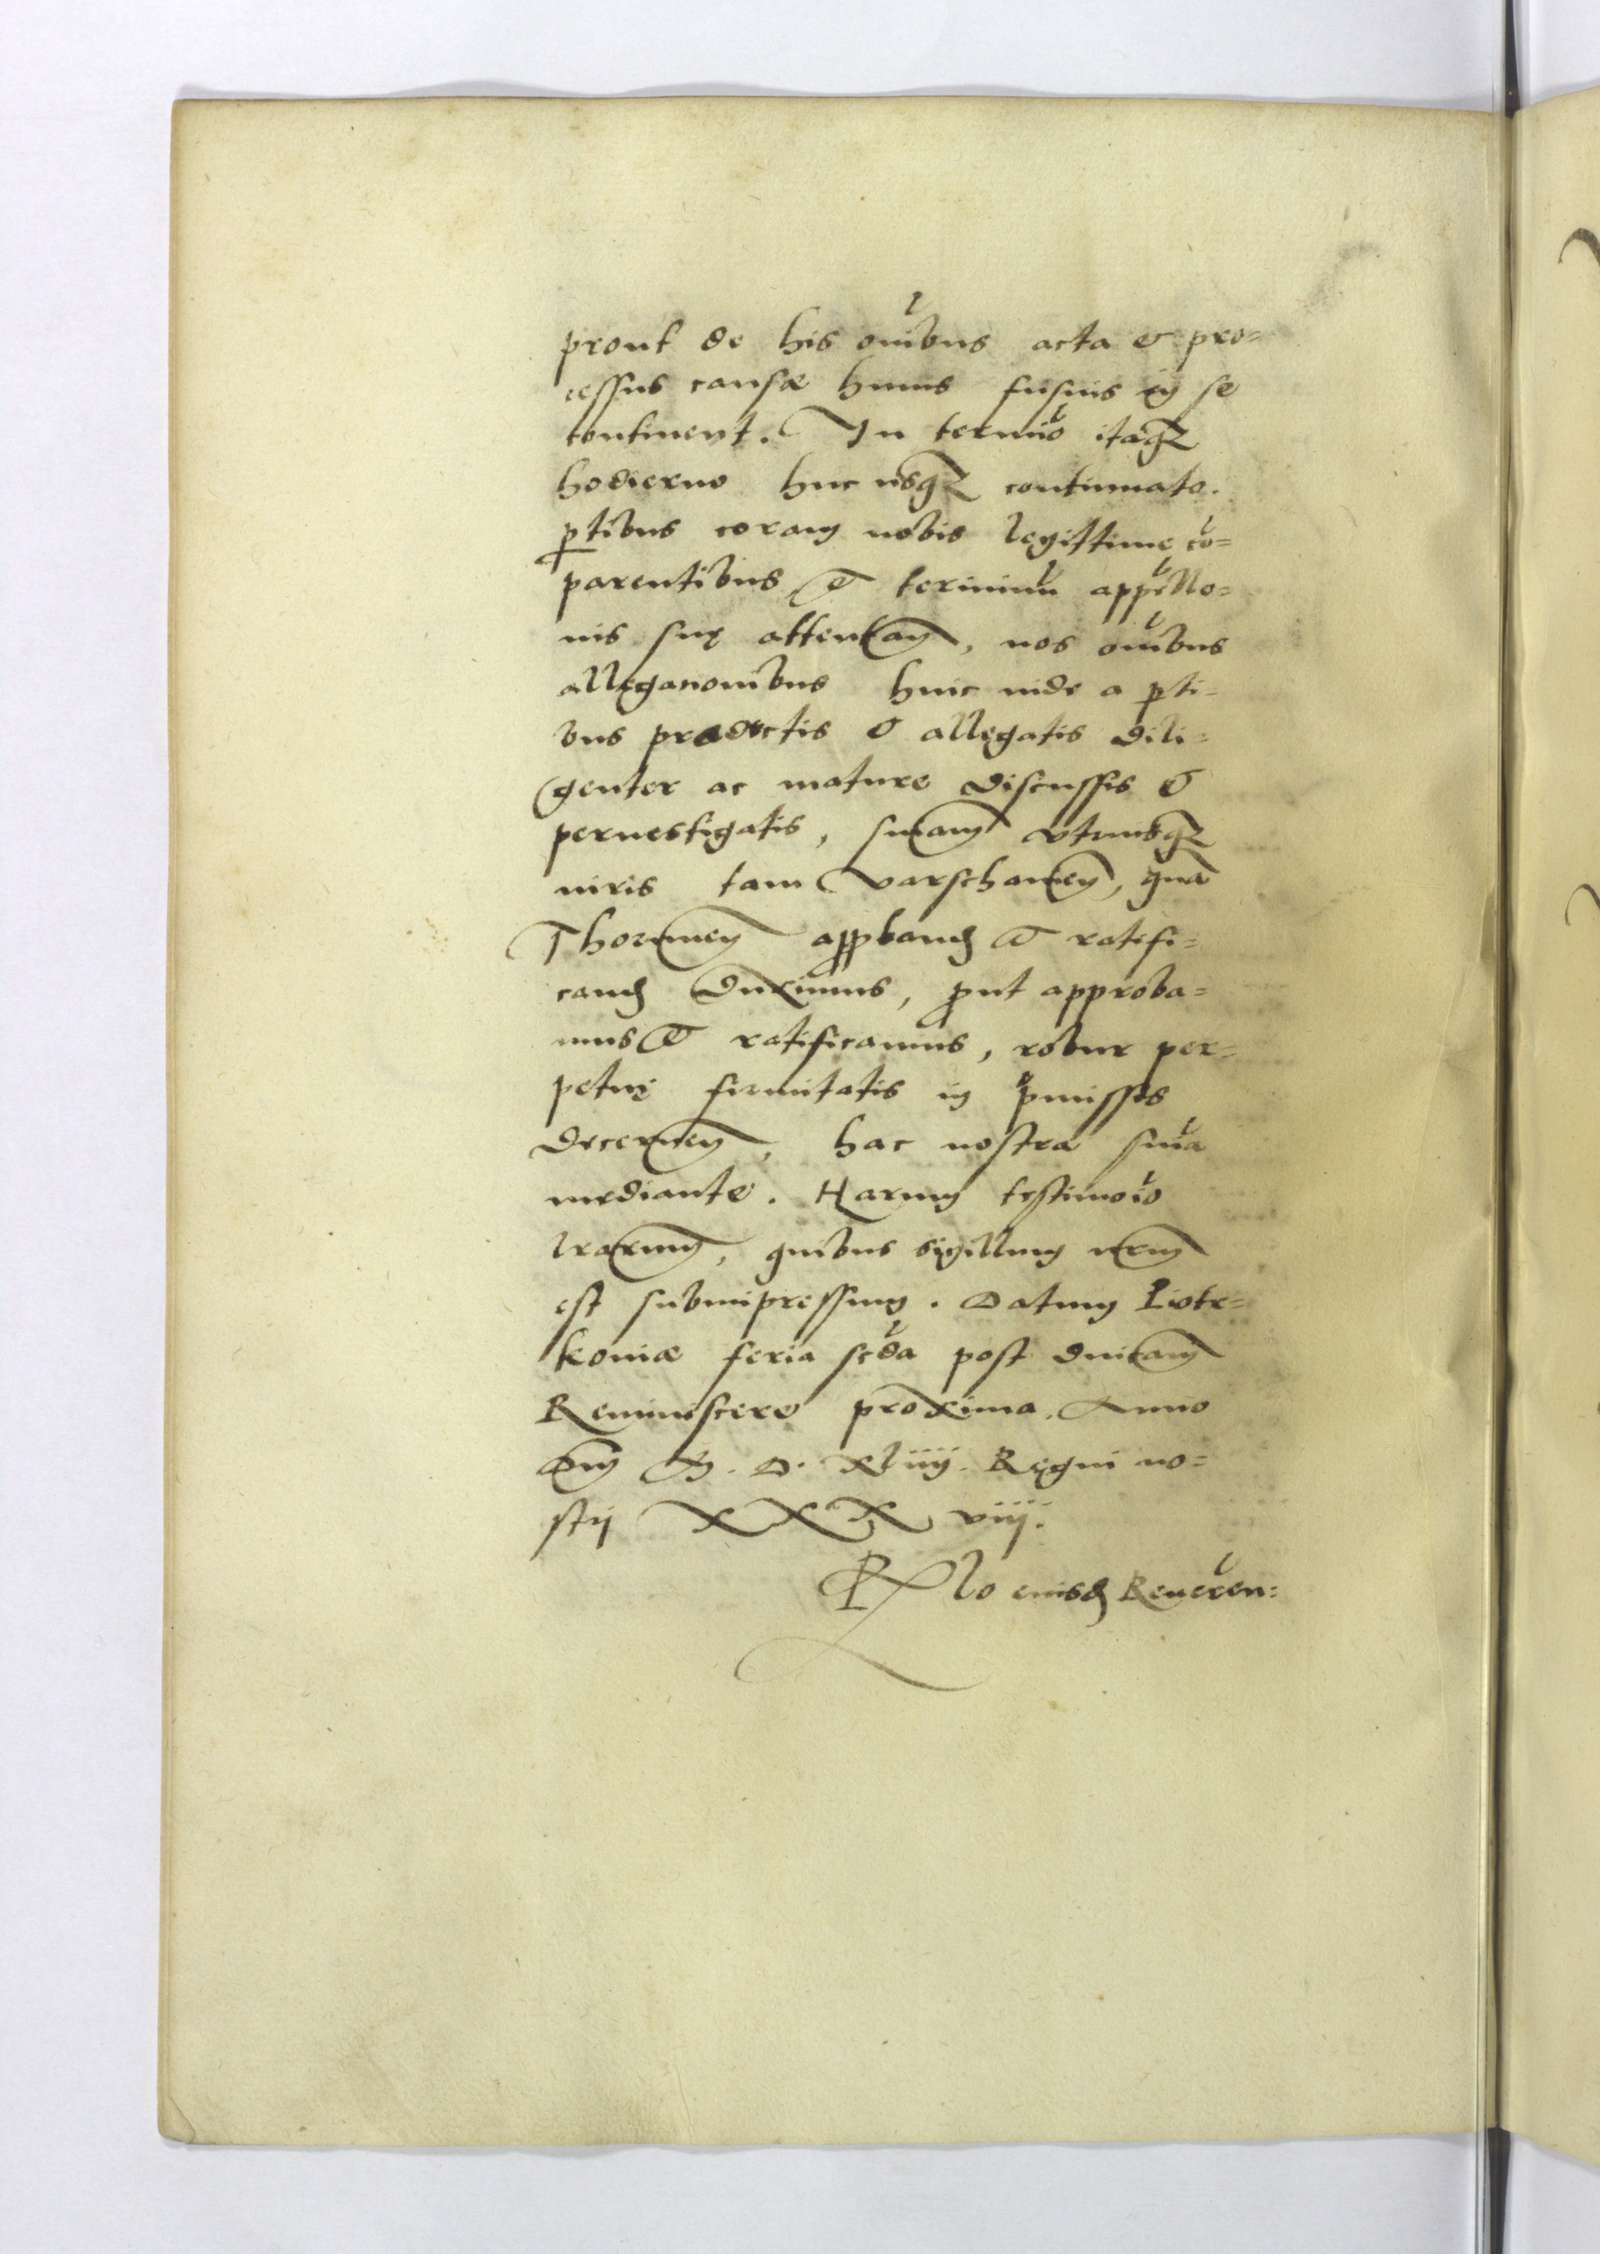 prout de his oībus acta et pro=
cessus causæ huius fusius in se
continent. In termīo itaq̨
hodierno huc usq̨ continuato.
ꝑtibus coram nobis legittime cō=
parentibus et terminū appellō=
nis suę attentan̄, nos oībus
allegationibus hinc inde a ꝑti=
bus productis et allegatis dili=
genter ac mature discussis et
peruestigatis, snīam vtriusq̨
iuris tam Varschauien̄, quā
Thorunien̄ approband̄ et ratifi=
cand̄ duximus, ꝓut approba=
mus et ratificamus, robur per=
petuę firmitatis in p̄missis
decernen̄, hac nostra snīa
mediante. Harum testimoīo
lrārum, quibus sigillum nr̄m
est subimpressum. Datum Piotr=
kouiæ feria scďa post dnīcam
Reminiscere proxima. Anno
Dnī M. D. xliiij. Regni no=
strij XXX viij.
Rlō eiusd̄ Reueren=